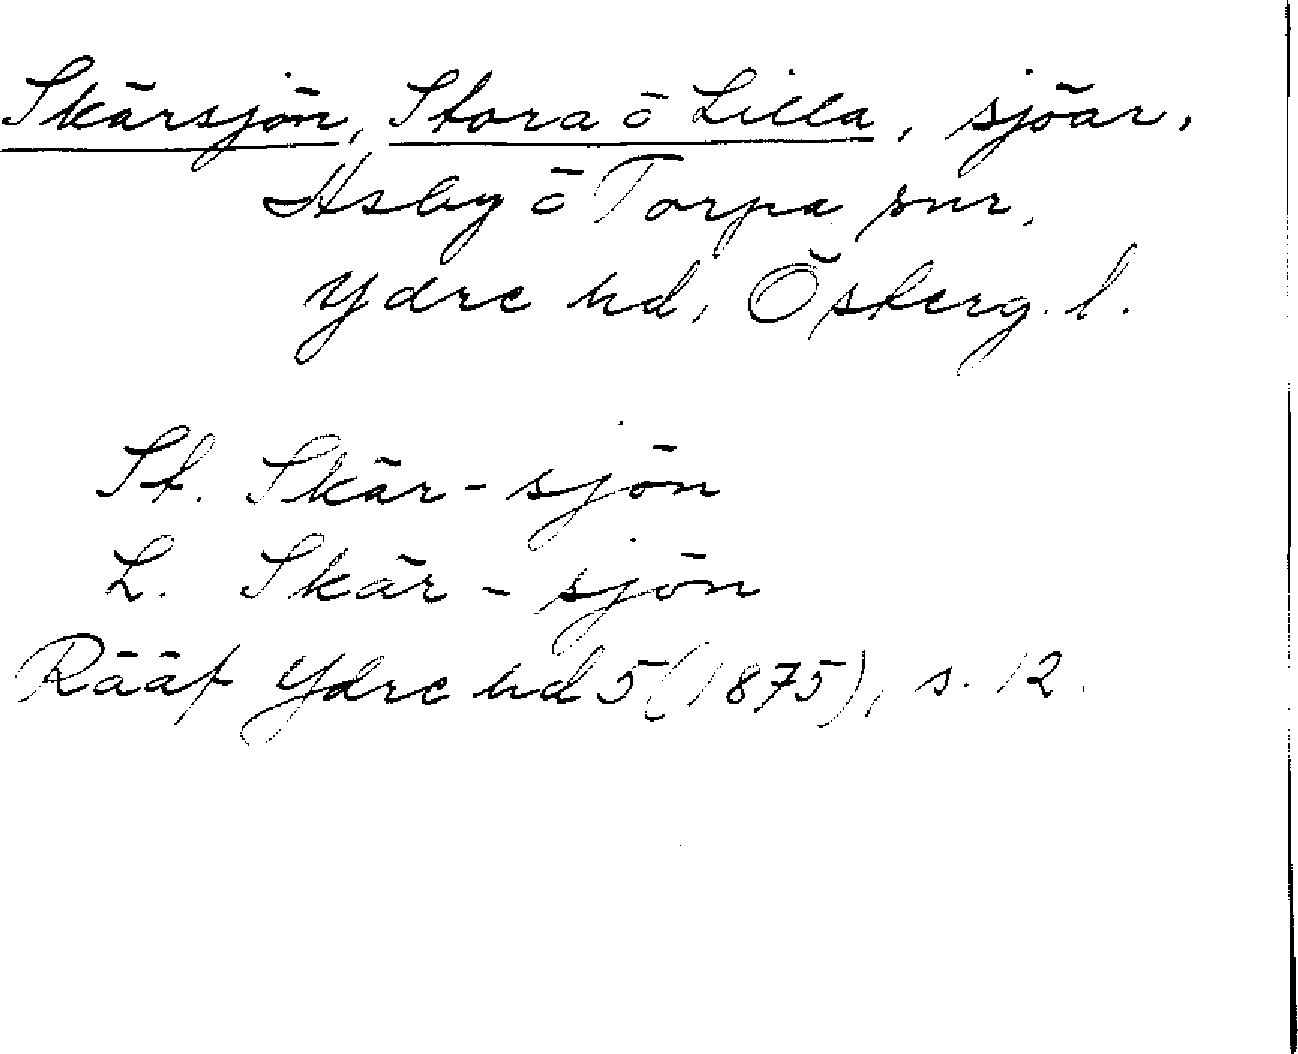 Skärsjön, Stora o Lilla, sjöar,
Asby o Torpa snr,
Ydre hd, Österg. l.
St. Skär-sjön
L. Skär-sjön
Rääf Ydre hd 5 (1875), s. 12.